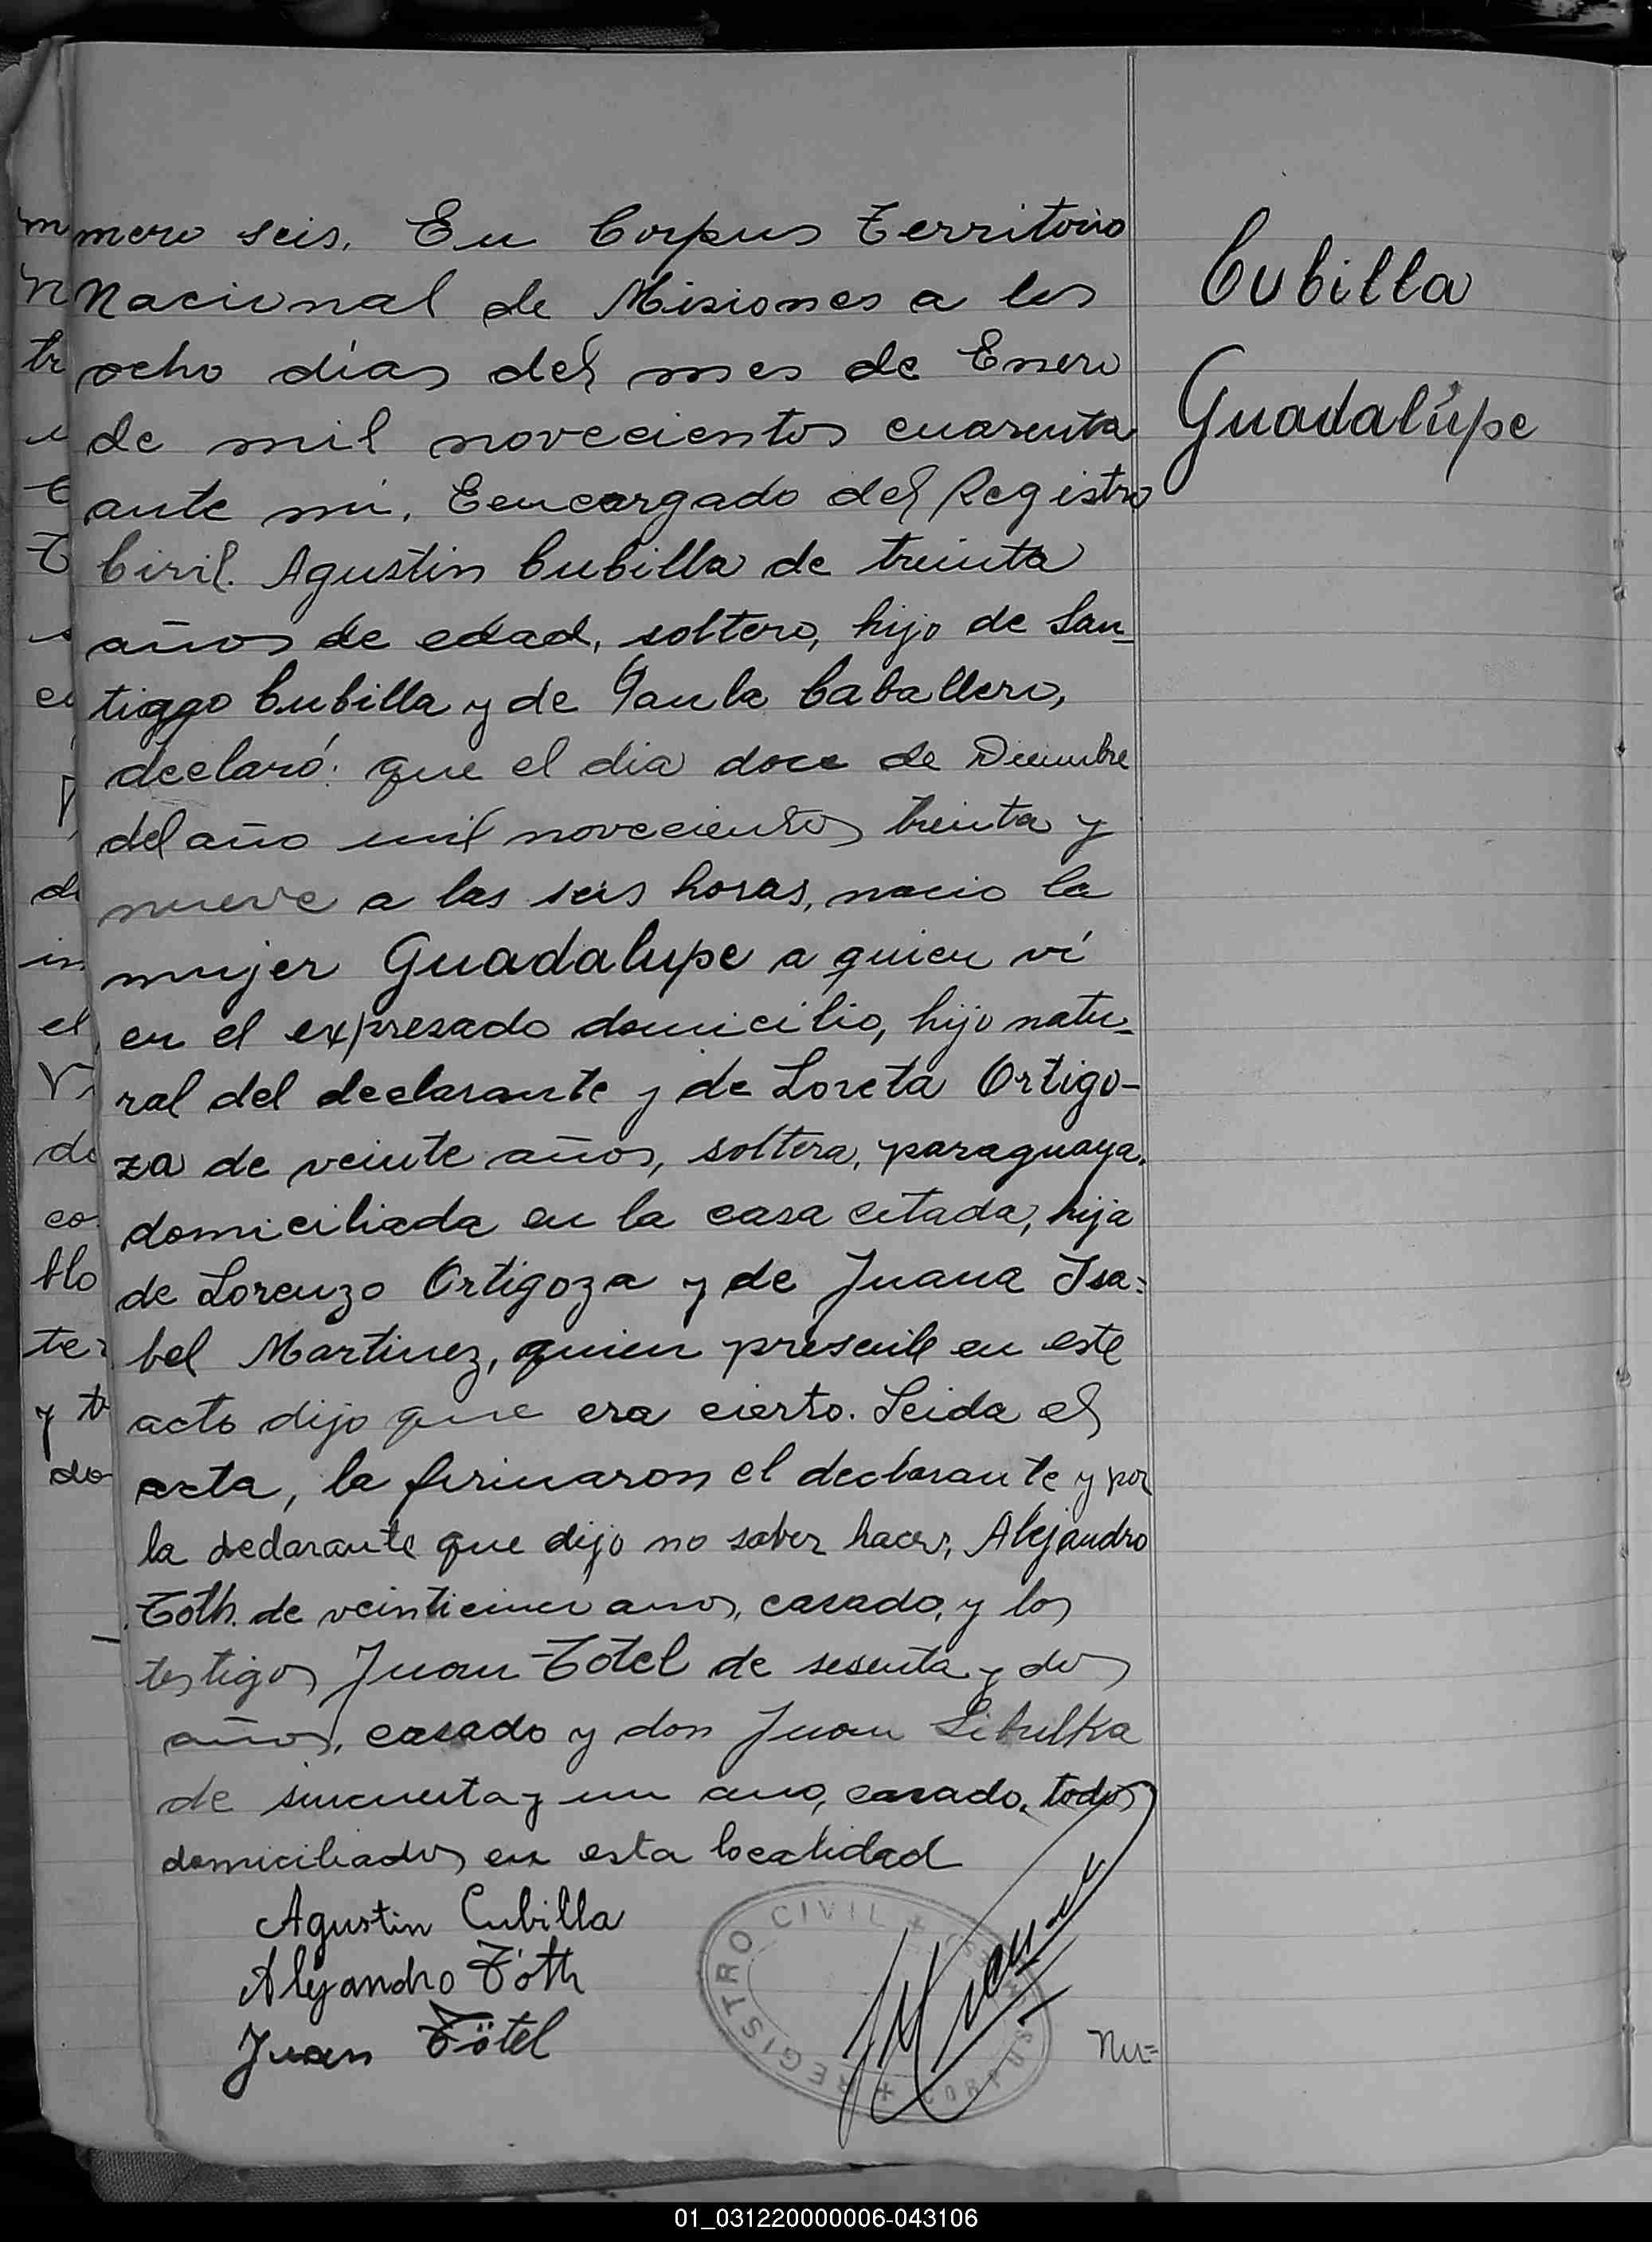 mero seis. En Corpus Territorio
Nacional de Misiones a los
ocho días del mes de Enero
de mil novecientos cuarenta
ante mí, Eencargado del Registro
Civil. Agustin Cubilla de treinta
años de edad, soltero, hijo de San-
tiago Cubilla y de Paula Caballero,
declaró: que el dia doce de Diciembre
del año mil novecientos treinta y
nueve a las seis horas, nacio la
mujer Guadalupe a quien ví
en el expresado domicilio, hijo natu-
ral del declarante y de Loreta Ortigo-
za de veinte años, soltera, paraguaya.
domiciliada en la casa citada, hija
de Lorenzo Ortigoza y de Juana Isa=
bel Martinez, quien presente en este
acto dijo que era cierto. Leida el
acta, la firmaron el declarante y por
la declarante que dijo no saber hacer, Alejandro
Tóth. de veinticinco anos, casado, y los
testigos Juan Tótel de sesenta y dos
años, casado y don Juan Libulka
de sincuenta y un ano, casado. todos
domiciliados en esta localidad
Agustin Cubilla
Alejandro Tóth
Juan Tötel
Nu=
Cubilla
Guadalúpe
REGISTRO CIVIL
CORPUS
01_031220000006-043106